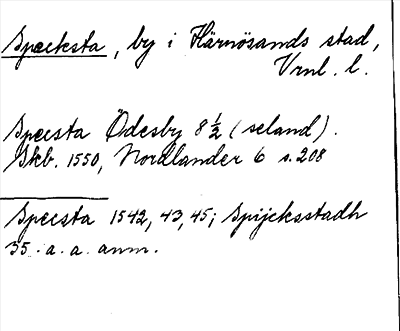 Specksta, by i Härnösands stad,
Vrnl. l.
Specsta Ödesby 8 1/2 (seland).
Skb. 1550, Nordlander 6 s. 208
Specsta 1542, 43, 45; Spijcksstadh
35. a. a. anm.